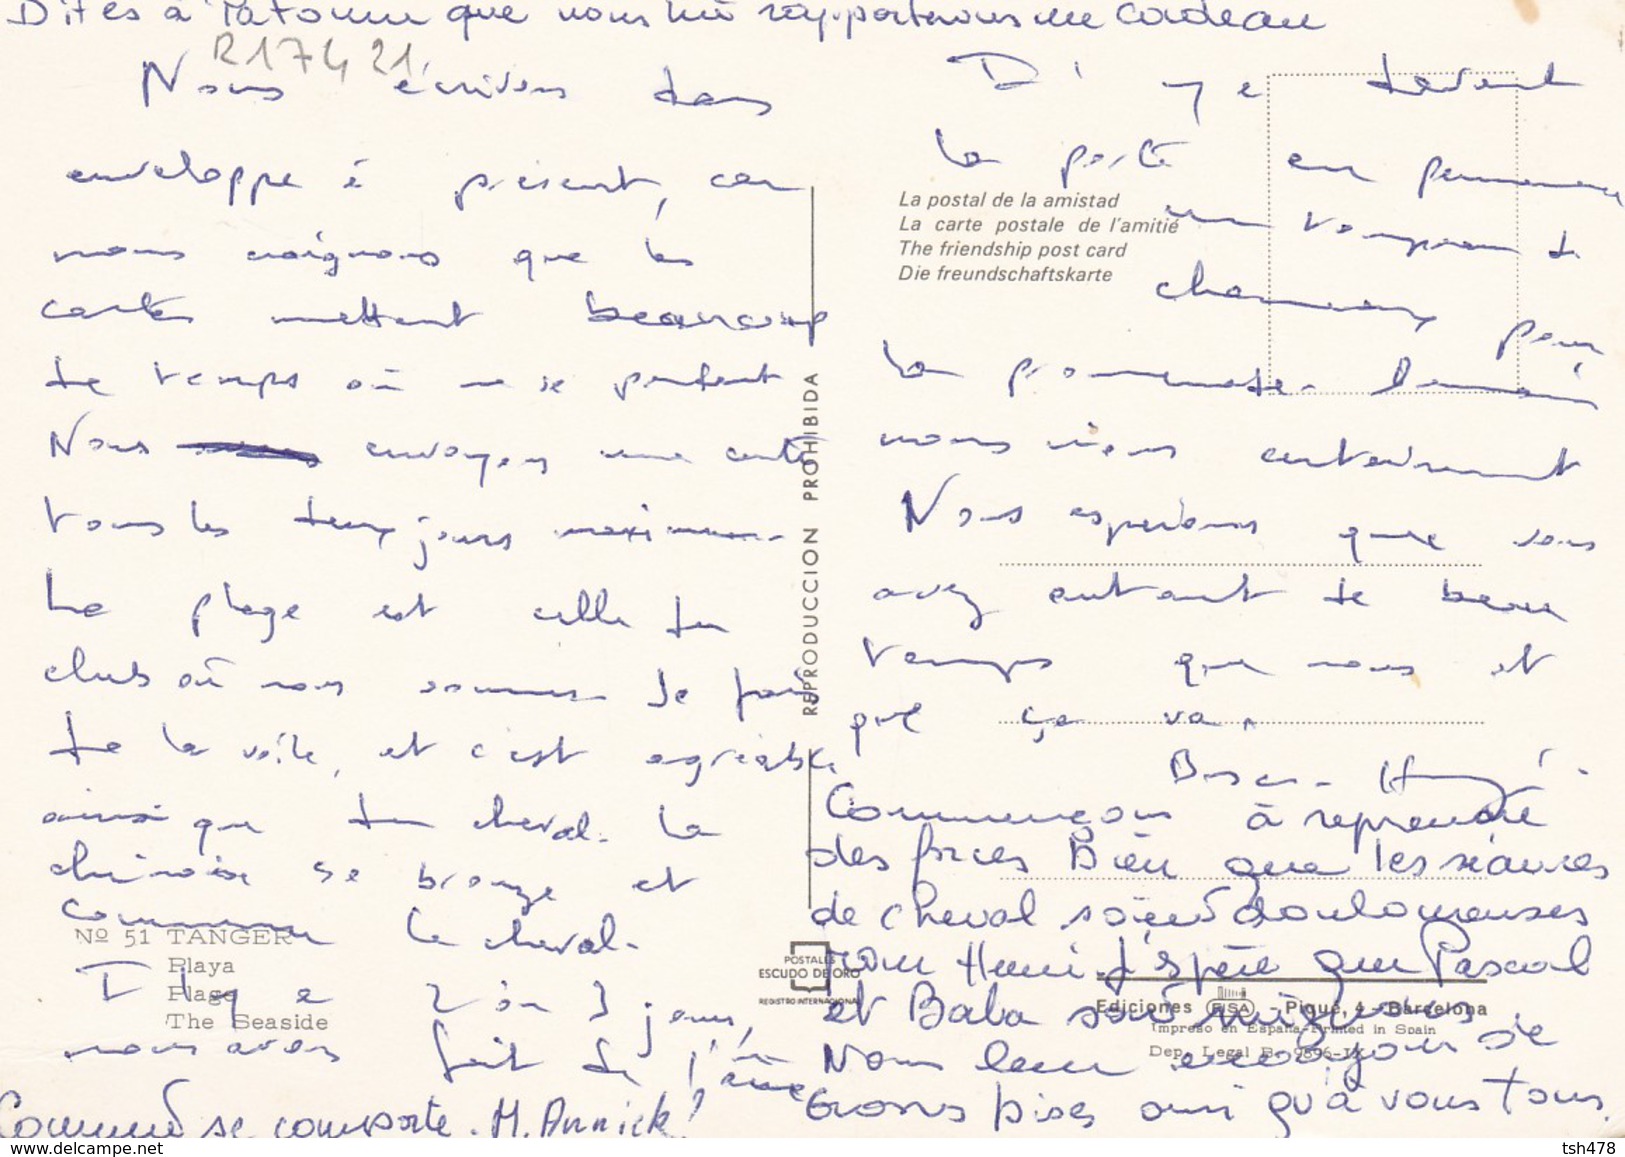 Dites à que nous lui rapporterons un cadeau
R17421
Nous écrivons dans
enveloppe à présent, car
nous craignons que les
cartes mettent beaucoup
de temps où ne se perdent
Nous envoyons une carte
tous les deux jours maximum.
La plage est celle du
club où nous sommes. Je fais
de la voile, et c'est agréable
ainsi que du cheval. La
chinoise se bronze et
commence le cheval.
Il y a 2 ou 3 jours,
nous avons fait de l'âne
Comment se comporte. M. Annick?
Nº 51 TANGER
Playa
Plage
The Seaside
REPRODUCCION PROHIBIDA
POSTALES
ESCUDO DE ORO
REGISTRO INTERNACIONAL
La postal de la amistad
La carte postale de l'amitié
The friendship post card
Die freundschaftskarte
Il y a devant
la porte en permanence
un troupeau de
chameaux pour
la promenade. Demain
nous irons certainement
Nous espérons que vous
avez autant de beau
temps que nous et
que ça va.
Commençons à reprendre
des forces Bien que les séances
de cheval soient douloureuses
pour Henri J'espère que Pascal
et Baba sont
Nous leur envoyons de
Grosses bises ainsi qu'à vous tous.
Ediciones FISA - Piqué, 4 - Barcelona
Impreso en España-Printed in Spain
Dep. Legal B. 9896-IX
delcampe.net
tsh478